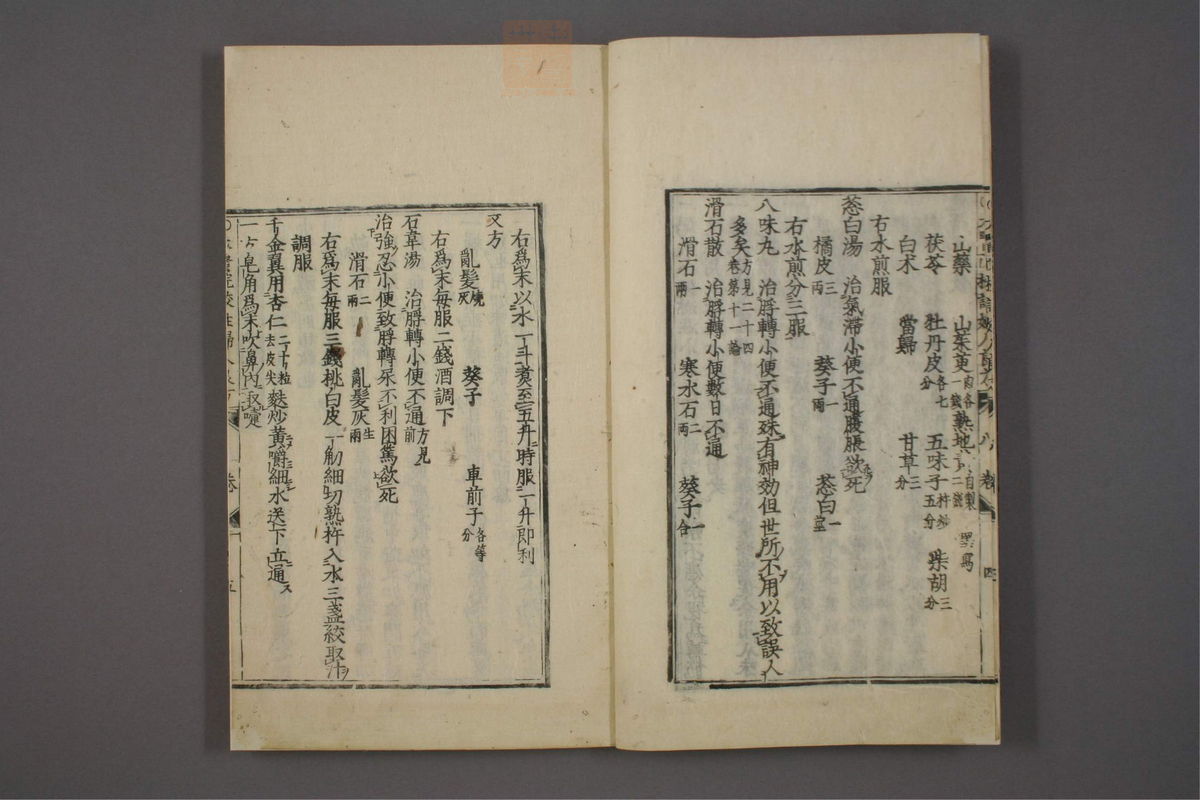 山藥 山茱萸肉各一錢 熟地二錢
茯苓 牡丹皮各七分 五味子杵炒五分 柴胡三分
白朮 當歸 甘草三分
右水煎服
葱白湯 治氣滯小便不通腹脹欲死
橘皮三兩 葵子一兩 葱白一莖
右水煎分三服
八味丸 治脬轉小便不通殊有神効但世所不用以致誤人
多矣方見二十四卷第十一論
滑石散 治脬轉小便數日不通
滑石一兩 寒水石二兩 葵子一合
右爲末以水一斗煑至五升時服一升即利
又方
亂髮燒灰 葵子 車前子各等分
右爲末每服二錢酒調下
石韋湯 治脬轉小便不通方見前
治強忍小便致脬轉尿不利困篤欲死
滑石二兩 亂髮灰半兩
右爲末每服三錢桃白皮一觔細切熟杵入水三盞絞取汁
調服
千金翼用杏仁二十粒去皮尖麩炒黄嚼細水送下立通
一方皂角爲末吹鼻内取嚏